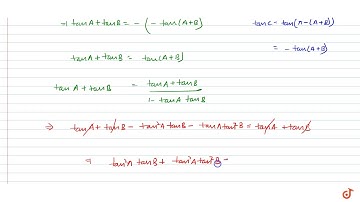 -1 tanA + tanB = - ( - tan(A+B)
tanA + tanB = tan(A+B)
tanA + tanB = tanA + tanB
1 - tanA tanB
⇒ tanA + tanB - tan²A tanB - tanA tan²B = tanA + tanB
= tan²A tanB + tanA tan²B =
tanC - tan(π - (A+B))
= - tan(A+B)